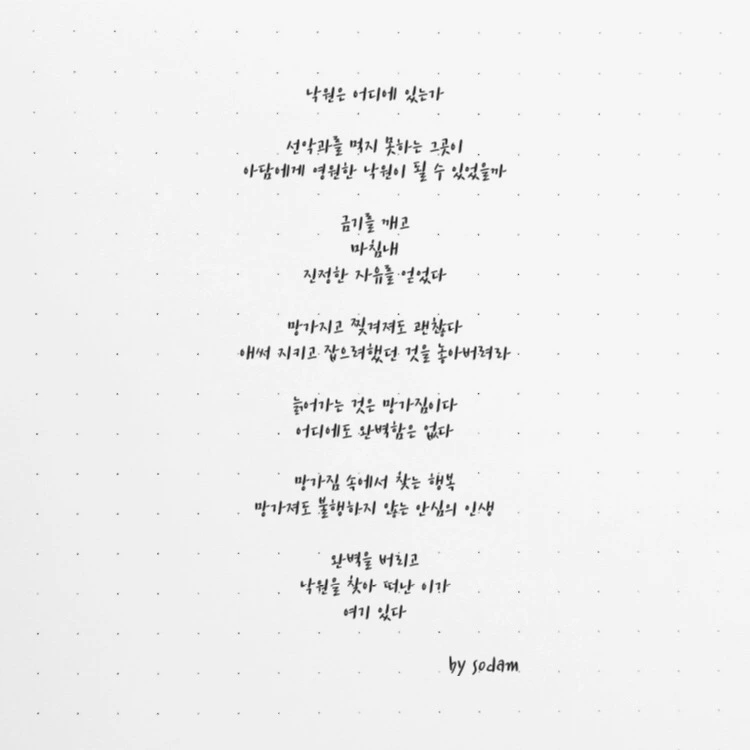 낙원은 어디에 있는가
선악과를 먹지 못하는 그곳이
아담에게 영원한 낙원이 될 수 있었을까
금기를 깨고
마침내
진정한 자유를 얻었다
망가지고 찢겨져도 괜찮다
애써 지키고 잡으려했던 것을 놓아버려라
늙어가는 것은 망가짐이다
어디에도 완벽함은 없다
망가짐 속에서 찾는 행복
망가져도 불행하지 않는 안심의 인생
완벽을 버리고
낙원을 찾아 떠난 이가
여기 있다
by sodam